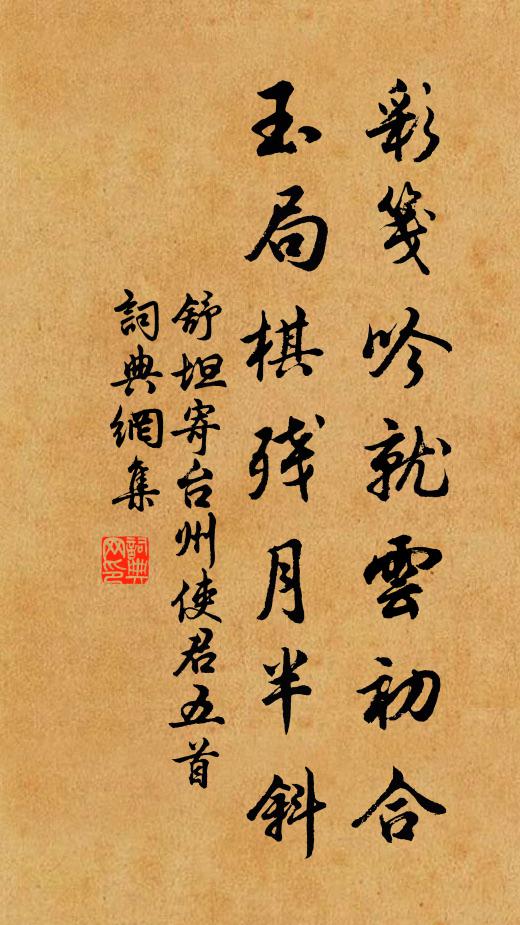 彩箋吟就雲初合
玉局棋残月半斜
舒坦寄台州使君五首
詞典網集
詞典网印